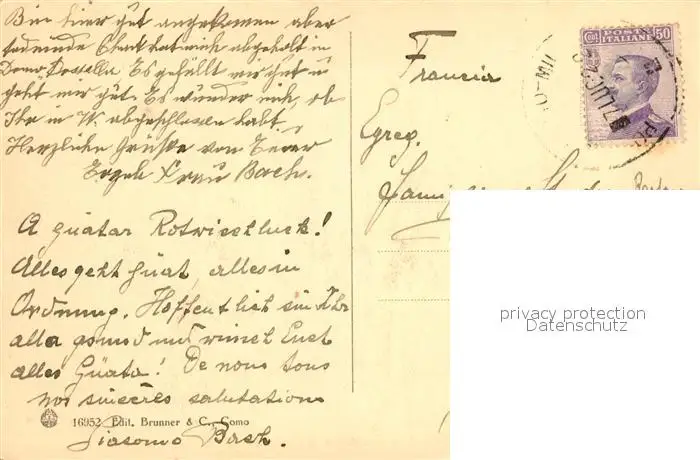 Bin hier gut angekommen aber
hat mich abgeholt in
Domo Dossolla Es gefällt mir gut u
geht mir gut. Es würder mich, ob
Ihr in W. abgeschlossen habt.
Herzliche Grüsse von Euer
Frau Bach.
A guatar Rotwieekluck!
Alles geht guat, alles in
Ordnung. Hoffentlich sind Ihr
alla gsund und wünsch Euch
alles Guata! De nous tous
nos sincères salutations
Giacomo Bach.
16952 Edit. Brunner & C., Como
Francia
Egreg.
POSTE ITALIANE
50
privacy protection
Datenschutz